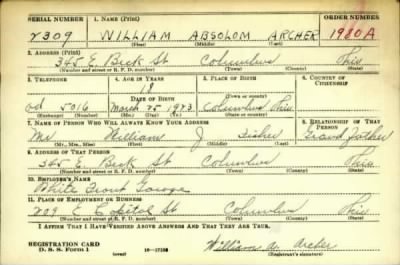 SERIAL NUMBER 1. NAME (Print) ORDER NUMBER
2309 WILLIAM ABSOLOM ARCHER 1980A
(First) (Middle) (Last)
2. ADDRESS (Print)
345 E. Beck St Columbus Ohio
(Number and street or R. F. D. number) (Town) (County) (State)
3. TELEPHONE 4. AGE IN YEARS 5. PLACE OF BIRTH 6. COUNTRY OF CITIZENSHIP
18
DATE OF BIRTH (Town or county)
ad 5016 March 25 1923 Columbus Ohio
(Exchange) (Number) (Mo.) (Day) (Yr.) (State or country)
7. NAME OF PERSON WHO WILL ALWAYS KNOW YOUR ADDRESS 8. RELATIONSHIP OF THAT PERSON
Mr William J Fisher Grand Father
(Mr., Mrs., Miss) (First) (Middle) (Last)
9. ADDRESS OF THAT PERSON
345 E. Beck St Columbus Ohio
(Number and street or R. F. D. number) (Town) (County) (State)
10. EMPLOYER'S NAME
White Front Garage
11. PLACE OF EMPLOYMENT OR BUSINESS
209 E Capitol St Columbus Ohio
(Number and street or R. F. D. number) (Town) (County) (State)
I AFFIRM THAT I HAVE VERIFIED ABOVE ANSWERS AND THAT THEY ARE TRUE.
REGISTRATION CARD
D. S. S. Form 1 (over) William A. Archer
(Registrant's signature)